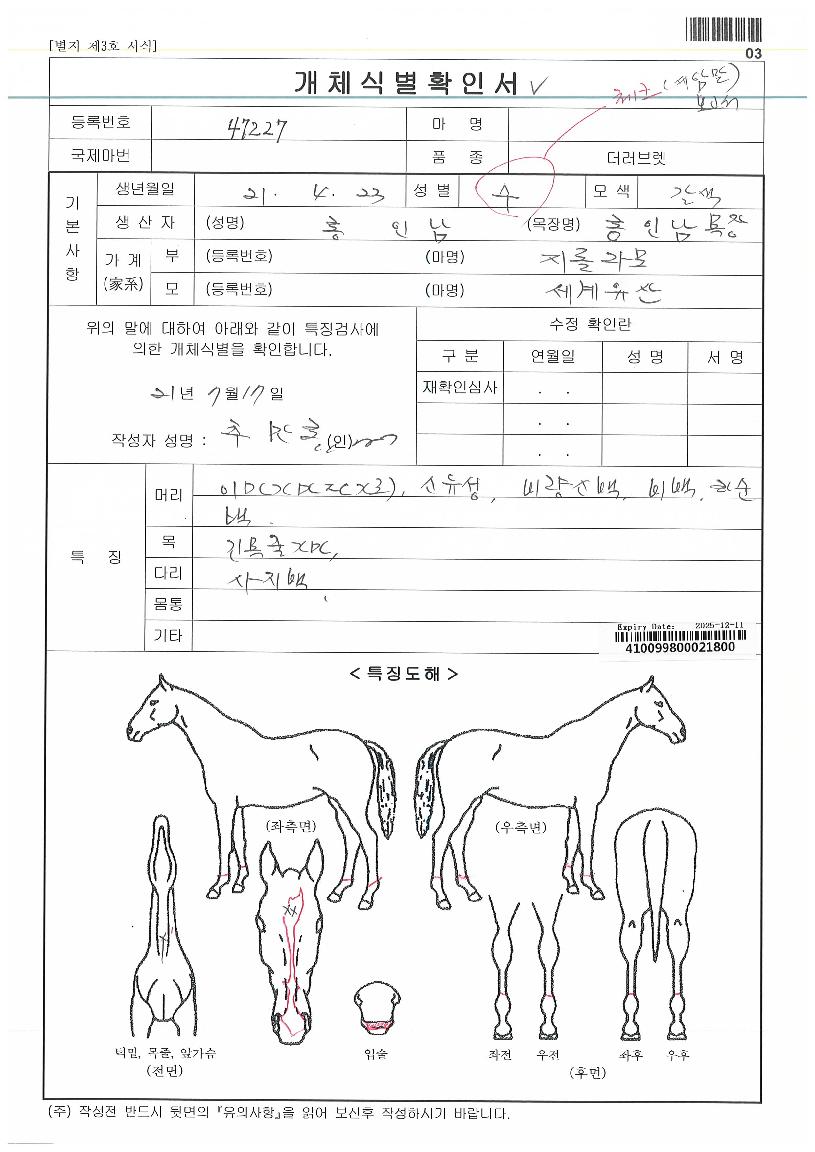 [별지 제3호 서식]
03
개체식별확인서
등록번호 47227 마 명
국제마번 품 종 더러브렛
기본사항
생년월일 21. 4. 23 성 별 수 모 색 갈색
생 산 자 (성명) 홍 인 남 (목장명) 홍인남목장
가 계 (家系)
부 (등록번호) (마명) 지롤라모
모 (등록번호) (마명) 세계유산
위의 말에 대하여 아래와 같이 특징검사에
의한 개체식별을 확인합니다.
21년 7월17일
작성자 성명 : (인)
수정 확인란
구 분 연월일 성 명 서 명
재확인심사 . .
. .
. .
특 징
머리 비백,
백.
목
다리 사지백
몸통
기타
Expiry Date: 2025-12-11
410099800021800
< 특징도해 >
(좌측면) (우측면)
턱밑, 목줄, 앞가슴
(전면)
입술
좌전 우전 좌후 우후
(후면)
(주) 작성전 반드시 뒷면의 『유의사항』을 읽어 보신후 작성하시기 바랍니다.